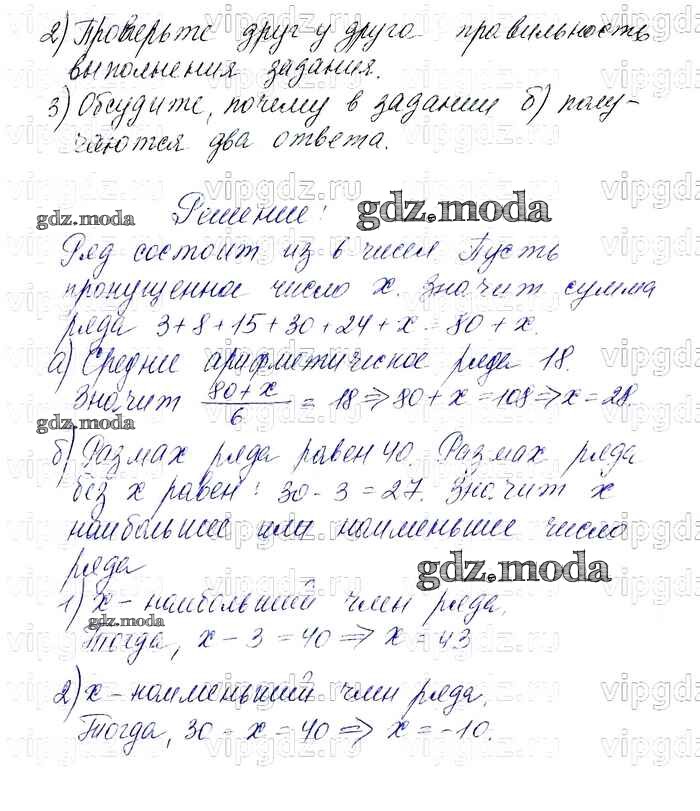 2) Проверьте друг у друга правильность
выполнения задания.
3) Обсудите, почему в задании б) полу-
чаются два ответа.
gdz.moda Решение: gdz.moda
Ряд состоит из 6 чисел. Пусть
пропущенное число x. Значит сумма
ряда 3+8+15+30+24+x=80+x.
а) Среднее арифметическое ряда 18.
Значит (80+x)/6 = 18 => 80+x=108 => x=28.
gdz.moda
б) Размах ряда равен 40. Размах ряда
без x равен: 30-3=27. Значит x
наибольшее или наименьшее число
ряда
gdz.moda
1) x - наибольший член ряда,
gdz.moda
Тогда, x-3=40 => x=43
2) x - наименьший член ряда,
Тогда, 30-x=40 => x=-10.
vipgdz.ru